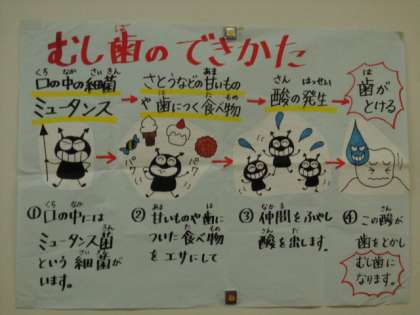 むし歯のできかた
口の中の細菌
ミュータンス
さとうなどの甘いもの
や歯につく食べ物
酸の発生
歯が
とける
パク
パク
①口の中には
ミュータンス菌
という細菌が
います。
②甘いものや歯に
ついた食べ物
をエサにして
③仲間をふやし
酸を出します。
④この酸が
歯をとかし
むし歯に
なります。